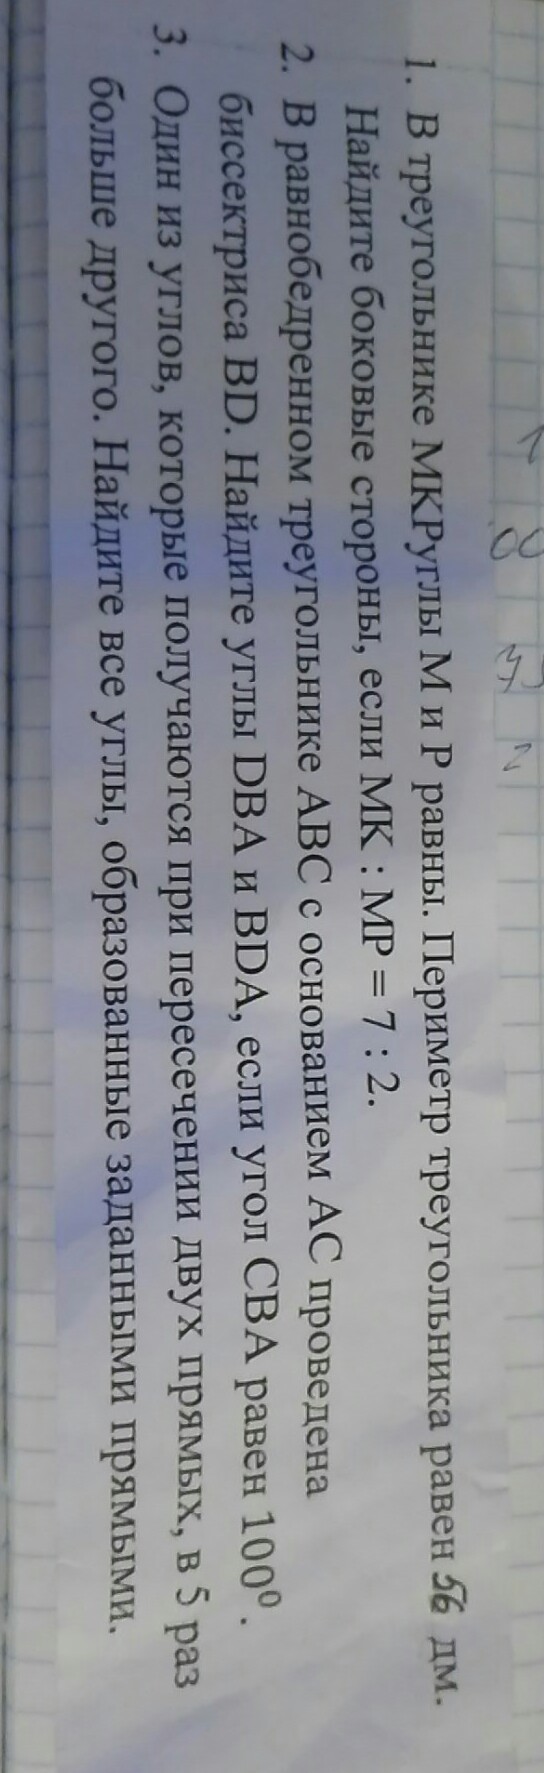 1. В треугольнике МКРуглы М и Р равны. Периметр треугольника равен 56 дм.
Найдите боковые стороны, если МК : МР = 7 : 2.
2. В равнобедренном треугольнике АВС с основанием АС проведена
биссектриса BD. Найдите углы DBA и BDA, если угол СВА равен 100⁰.
3. Один из углов, которые получаются при пересечении двух прямых, в 5 раз
больше другого. Найдите все углы, образованные заданными прямыми.